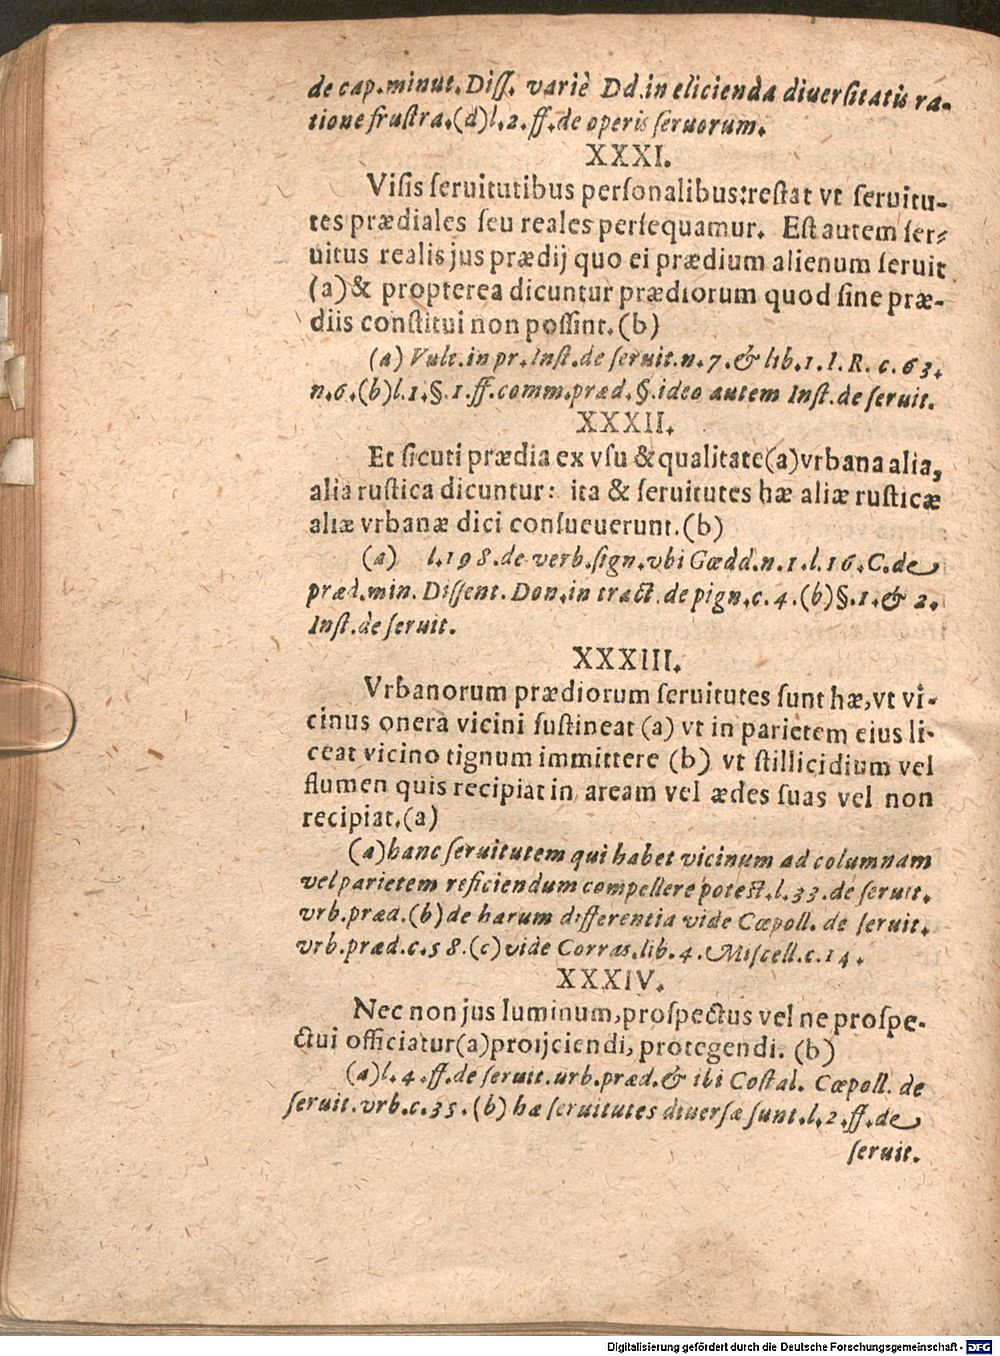 de cap.minut.Diſſ. variè Dd.in elicienda diuerſitatis ra-
tione fruſtra.(d)l.2.ff.de operis ſeruorum.
XXXI.
Viſis ſeruitutibus perſonalibus:reſtat vt ſeruitu-
tes prædiales ſeu reales perſequamur. Eſt autem ſer-
uitus realis jus prædij quo ei prædium alienum ſeruit
(a)& propterea dicuntur prædiorum quod ſine præ-
diis conſtitui non poſſint.(b)
(a) Vult.in pr.Inſt.de ſeruit.n.7.& lib.1.l.R.c.63.
n.6.(b)l.1.§.1.ff.comm.præd.§.ideo autem Inſt.de ſeruit.
XXXII.
Et ſicuti prædia ex vſu & qualitate(a)vrbana alia,
alia ruſtica dicuntur: ita & ſeruitutes hæ aliæ ruſticæ
aliæ vrbanæ dici conſueuerunt.(b)
(a) l.198.de verb.ſign.vbi Gœdd.n.1.l.16.C.de
præd.min. Diſſent. Don.in tract.de pign.c.4.(b)§.1.& 2.
Inſt.de ſeruit.
XXXIII.
Vrbanorum prædiorum ſeruitutes ſunt hæ,vt vi-
cinus onera vicini ſuſtineat (a) vt in parietem eius li-
ceat vicino tignum immittere (b) vt ſtillicidium vel
flumen quis recipiat in aream vel ædes ſuas vel non
recipiat.(a)
(a)hanc ſeruitutem qui habet vicinum ad columnam
vel parietem reficiendum compellere poteſt.l.33.de ſeruit.
vrb.præd.(b)de harum differentia vide Cœpoll. de ſeruit.
vrb.præd.c.58.(c)vide Corras.lib.4.Miſcell.c.14.
XXXIV.
Nec non jus luminum,proſpectus vel ne proſpe-
ctui officiatur(a)proijciendi, protegendi. (b)
(a)l.4.ff.de ſeruit.urb.præd.& ibi Coſtal. Cœpoll. de
ſeruit.vrb.c.35.(b) hæ ſeruitutes diuerſæ ſunt.l.2.ff.de
ſeruit.
Digitalisierung gefördert durch die Deutsche Forschungsgemeinschaft - DFG